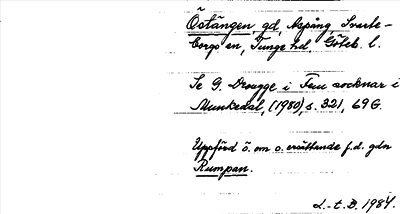 Östängen gd, Aspäng, Svarte-
borgs sn, Tunge hd, Göteb. l.
Se G. Drougge i Fem socknar i
Munkedal, (1980), s. 321, 69 G.
Uppförd ö. om o. ersättande f.d. gdn
Rumpan.
L.-t. B. 1984.